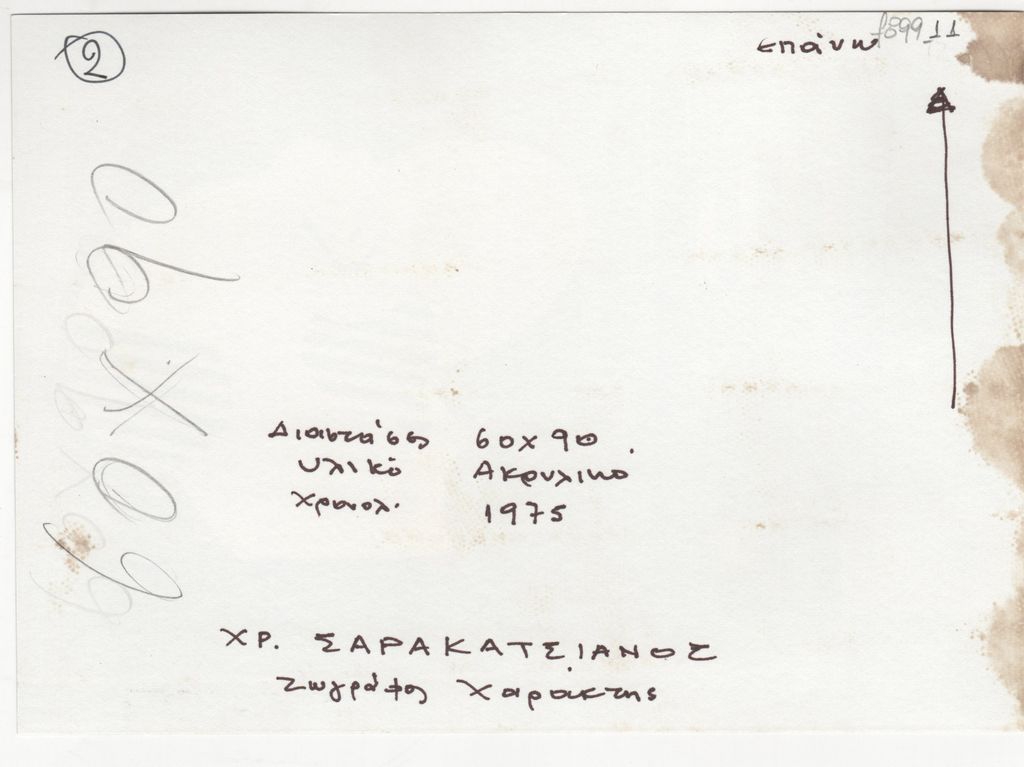 2
επάνω
f899_11
60X90
Διαστάσεις 60x90
Υλικό Ακρυλικό
Χρονολ. 1975
ΧΡ. ΣΑΡΑΚΑΤΣΙΑΝΟΣ
Ζωγράφος Χαράκτης